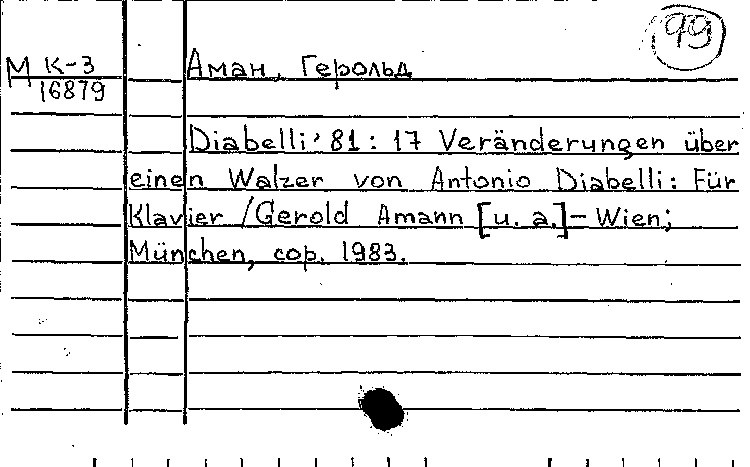 99
М К-3
16879
Аман, Герольд
Diabelli' 81 : 17 Veränderungen über
einen Walzer von Antonio Diabelli : Für
Klavier / Gerold Amann [u. a.] – Wien;
München, cop. 1983.